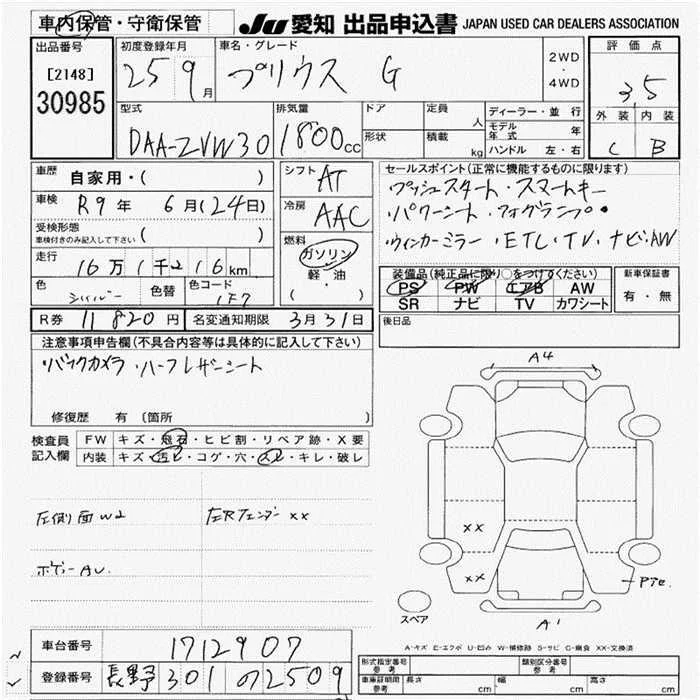 車内保管・守衛保管
JU 愛知 出品申込書 JAPAN USED CAR DEALERS ASSOCIATION
出品番号
[2148]
30985
初度登録年月
25 9月
車名・グレード
プリウス G
2WD
・
4WD
評価点
3.5
外装 内装
C B
型式
DAA-ZVW30
排気量
1800cc
ドア
形状
定員 人
積載 kg
ディーラー・並行
モデル年式 年
ハンドル 左・右
車歴 自家用・( )
車検 R9年 6月(24日)
受検形態
車検付きのみ記入して下さい ( )
走行 16万1千216km
色 シルバー 色替 色コード 1F7
シフト AT
冷房 AAC
燃料
ガソリン
軽・油
( )
セールスポイント(正常に機能するものに限ります)
プッシュスタート・スマートキー
パワーシート・フォグランプ・
ウィンカーミラー・ETC・TV・ナビ・AW
装備品(純正品に限り○をつけてください)
PS PW エアB AW
SR ナビ TV カワシート
新車保証書
有・無
R券 11820円 名変通知期限 3月31日
後日品
注意事項申告欄(不具合内容等は具体的に記入して下さい)
バックカメラ・ハーフレザーシート
修復歴 有 〔箇所
検査員
記入欄
FW キズ・飛石・ヒビ割・リペア跡・X要
内装 キズ・汚レ・コゲ・穴・スレ・キレ・破レ
左側面W2
左Rフェンダー××
ボデーAU.
A4
××
××
Pアセ
A1
スペア
A-キズ E-エクボ U-凹み W-補修跡 S-サビ C-腐食 XX-交換済
車台番号 1712907
登録番号 長野 301 の 2509
形式指定番号
参考
類別区分番号
参考
車庫証明期
参考
長さ cm 幅 cm 高さ cm